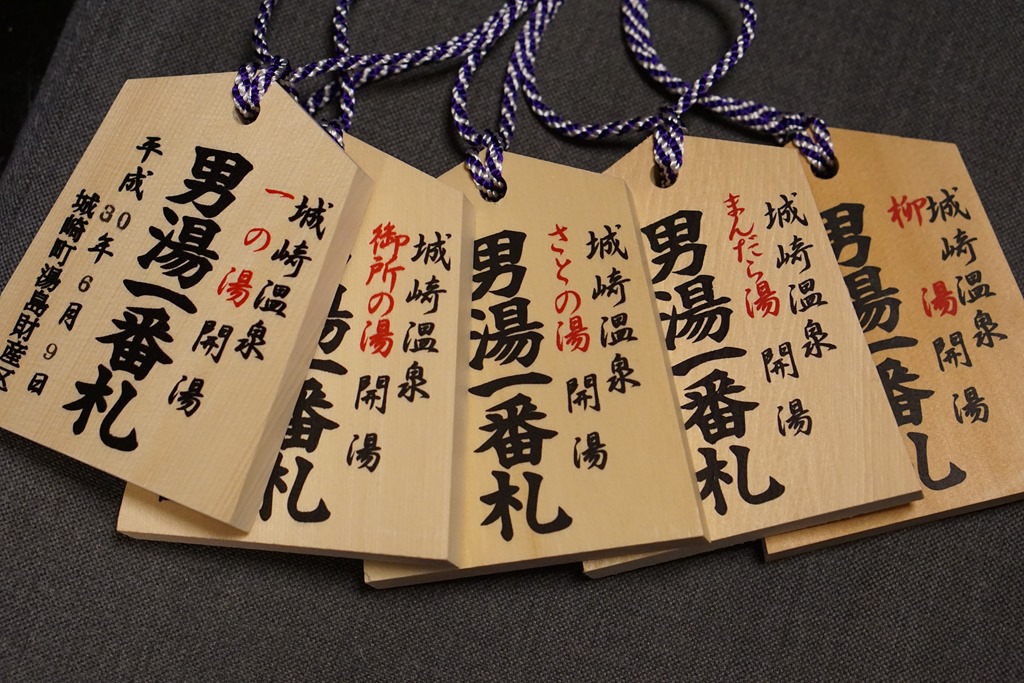 城崎温泉
一の湯開湯
男湯一番札
平成30年6月9日
城崎町湯島財産区
城崎温泉
御所の湯開湯
湯一番札
城崎温泉
さとの湯開湯
男湯一番札
城崎温泉
まんだら湯開湯
男湯一番札
城崎温泉
柳湯開湯
男湯一番札